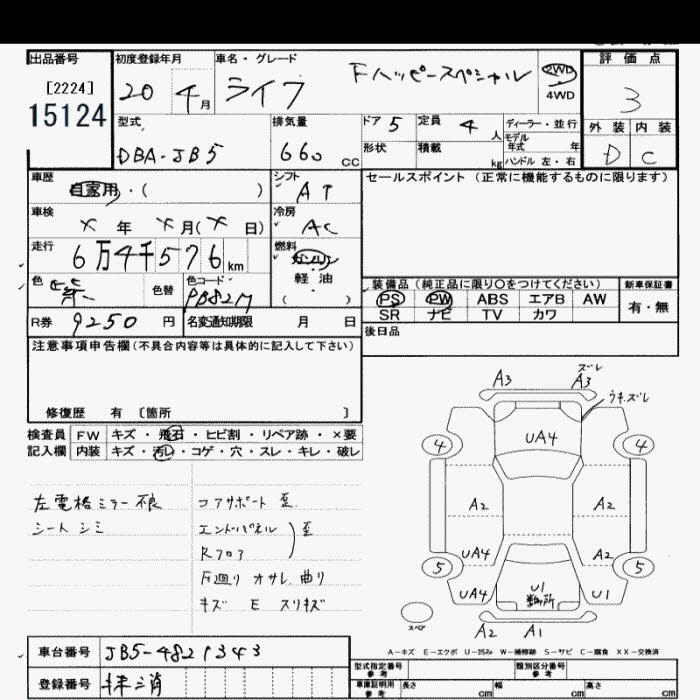 出品番号
[2224]
15124
初度登録年月
20 4月
車名・グレード
ライフ Fハッピースペシャル
2WD
4WD
評価点
3
外装 内装
D C
型式
DBA-JB5
排気量
660 CC
ドア 5
定員 4人
ディーラー・並行
モデル年式 年
形状
積載 kg
ハンドル 左・右
車歴
自家用・( )
シフト
AT
セールスポイント (正常に機能するものに限ります)
車検
× 年 × 月(× 日)
冷房
AC
走行
6万4千576km
燃料
ガソリン
・
軽油
( ・ )
色
紫
色替
色コード
PB82M
装備品 (純正品に限り○をつけてください)
PS PW ABS エアB AW
SR ナビ TV カワ
新車保証書
有・無
R券 9250 円
名変通知期限 月 日
後日品
注意事項申告欄(不具合内容等は具体的に記入して下さい)
修復歴 有 〔箇所 〕
検査員記入欄
FW キズ・飛石・ヒビ割・リペア跡・×要
内装 キズ・汚レ・コゲ・穴・スレ・キレ・破レ
左電格ミラー不良
シート シミ
コアサポート 歪
エンドパネル
Rフロア
歪
F廻り オサレ 曲り
キズ E スリキズ
A3
ズレ
A3
ウキズレ
4
UA4
4
A2
A2
UA4
A2
5
5
UA4
U1
U1
スペア
A2 A1
A-キズ E-エクボ U-凹み W-補修跡 S-サビ C-腐食 XX-交換済
車台番号
JB5-4821343
登録番号
型式指定番号
参考
類別区分番号
参考
車庫証明用
参考
長さ cm
幅 cm
高さ cm